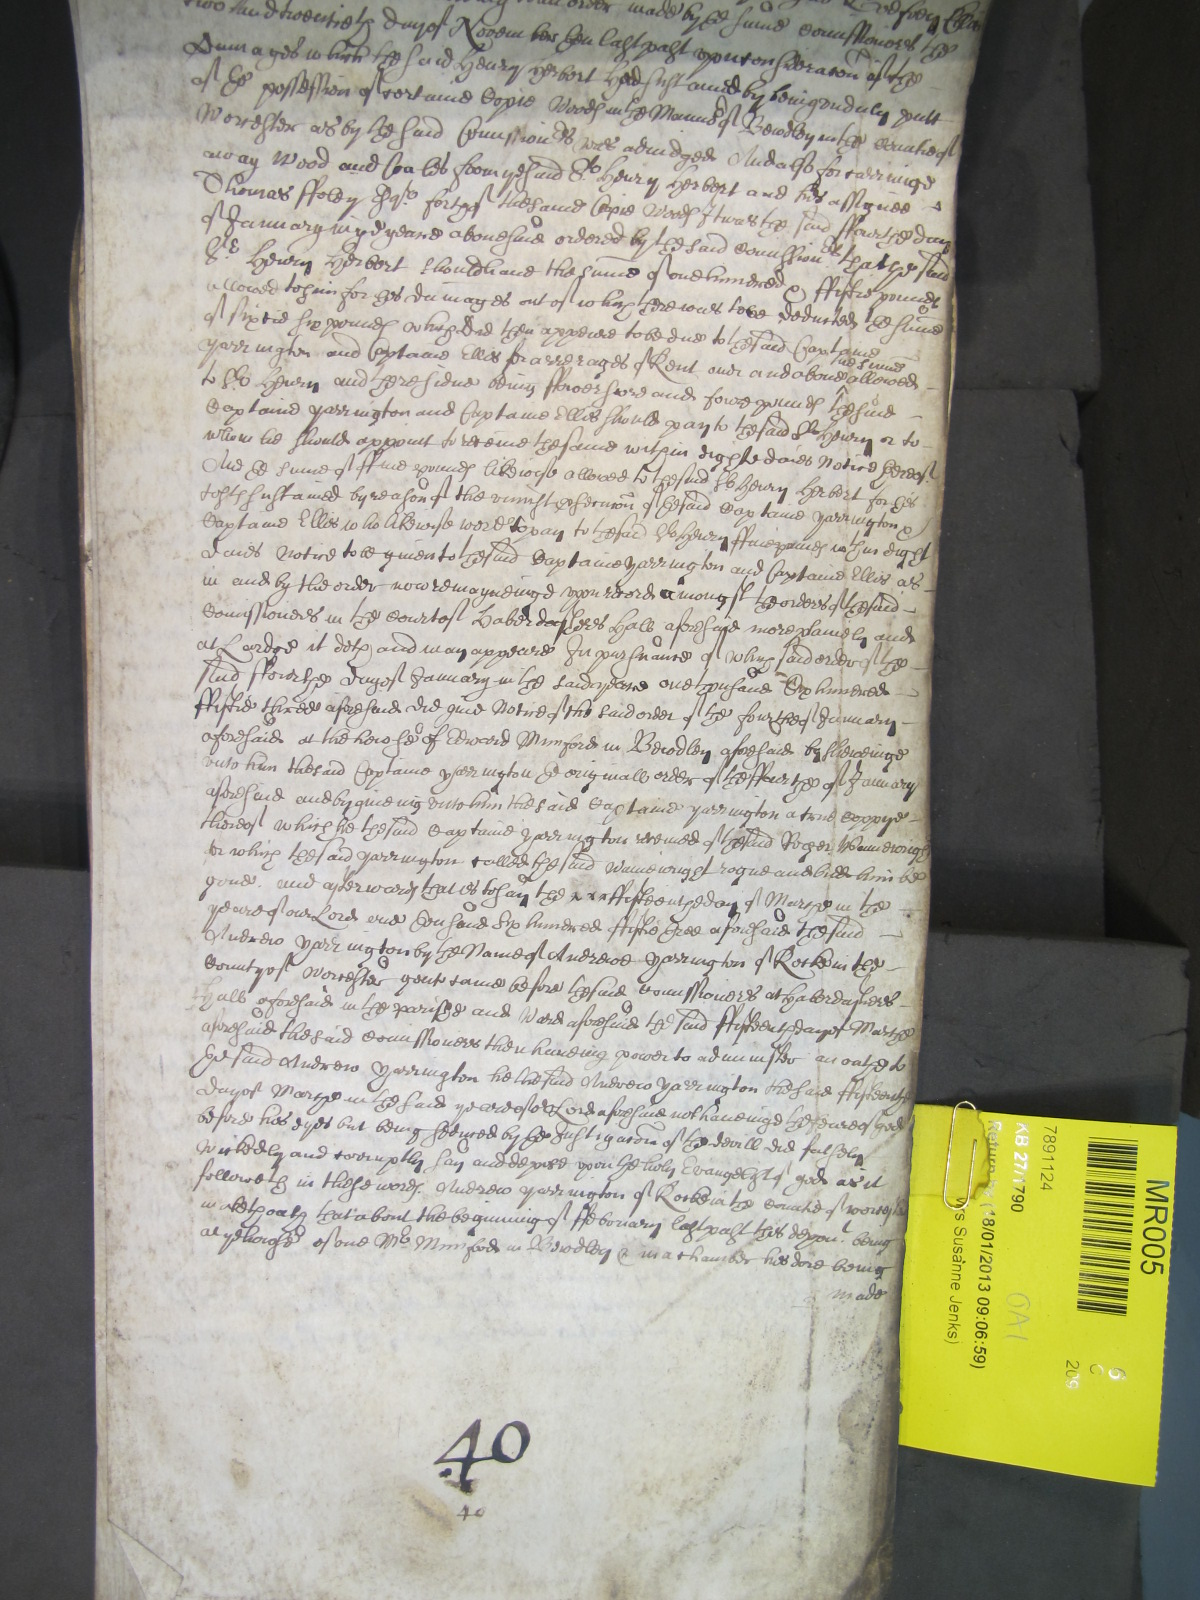 an order made by the said Comissioners the
two and twentieth day of November then last past upon consideracon of the
Damages which the said Henry Herbert had sustained by being unduly putt
of the possession of certaine Copie Woods in the Mannor of Bewdley in the Countie of
Worcester as by the said Comissioners was adiudged And also for carringe
away Wood and Coales from the said Sr Henry Herbert and his assignee
Thomas ffoley Esqr. forth of the same Copie Woods It was the said ffourthe day
of January in the yeare abovesaid ordered by the said Comissioners that the said
Sr Henry Herbert should have the summe of one hundred & ffiftie pounds
allowed to him for his damages out of which there was to be deducted the summe
of sixtie six pounds which did then appeare to be due to the said Captaine
Yarrington and Captaine Ellis for arrerages of Rent over and above the summe allowed
to Sr Henry and the residue being ffower score and fower pounds the said
Captaine Yarrington and Captaine Ellis should pay to the said Sr Henry or to
whom he should appoint to receive the same within eight daies Notice hereof
And the summe of ffive pounds likewise allowed to the said Sr Henry Herbert for his
costs sustained by reason of the unjust of the said Captaine Yarrington &
Captaine Ellis who likewise were to pay to the said Sr Henry ffive pounds within eight
daies Notice to be given to the said Captaine Yarrington and Captaine Ellis as
in and by the order now remayneinge upon record amongst the orders of the said
Comissioners in the Court of Haberdashers Hall aforesaid more plainely and
at Lardge it doth and may appeare In pursuance of which said order of the
said ffourthe day of January in the said yeare one thousand Six hundred
ffiftie three aforesaid did give Notice of the said order of the fourthe of January
aforesaid at the howse of Edward Mimford in Bewdley aforesaid by sheweinge
unto him the said Captaine Yarrington the originall order of the ffourthe of January
aforesaid and by giveing unto him the said Captaine Yarrington a true coppye
thereof which he the said Captaine Yarrington received of the said Roger Wainewright
for which the said Yarrington called the said Wainewright rogue and bidd him be
gone. and afterwards that is to say the ffifteenthe day of Marche in the
yeare of our Lord one thousand Six hundred ffiftie three aforesaid the said
Andrew Yarrington by the Name of Andrewe Yarrington of Rocke in the
County of Worcester gent came before the said Comissioners at Haberdashers
Halls aforesaid in the parishe and Ward aforesaid the said ffifteenth day of Marche
aforesaid the said Comissioners then haveing power to administer an oathe to
the said Andrew Yarrington he the said Andrew Yarrington the said ffifteenth
day of Marche in the said yeare of our Lord aforesaid not haveinge the feare of god
before his eyes but being seduced by the Instigacon of the devill did falsely
Wickedly and corruptly say and depose upon the holy Evangelist of god as it
followeth in these words. Andrew Yarrington of Rocke in the Countie of Worcester
maketh oath that about the beginning of ffebruary last past this depont. being
at the howse of one Mr Mimfords in Bewdley & in a chamber his dore being
made
40
40
MR005
7891124
KB 27/1790
Return (18/01/2013 09:06:59)
Susanne Jenks)
GA1
6
C
209